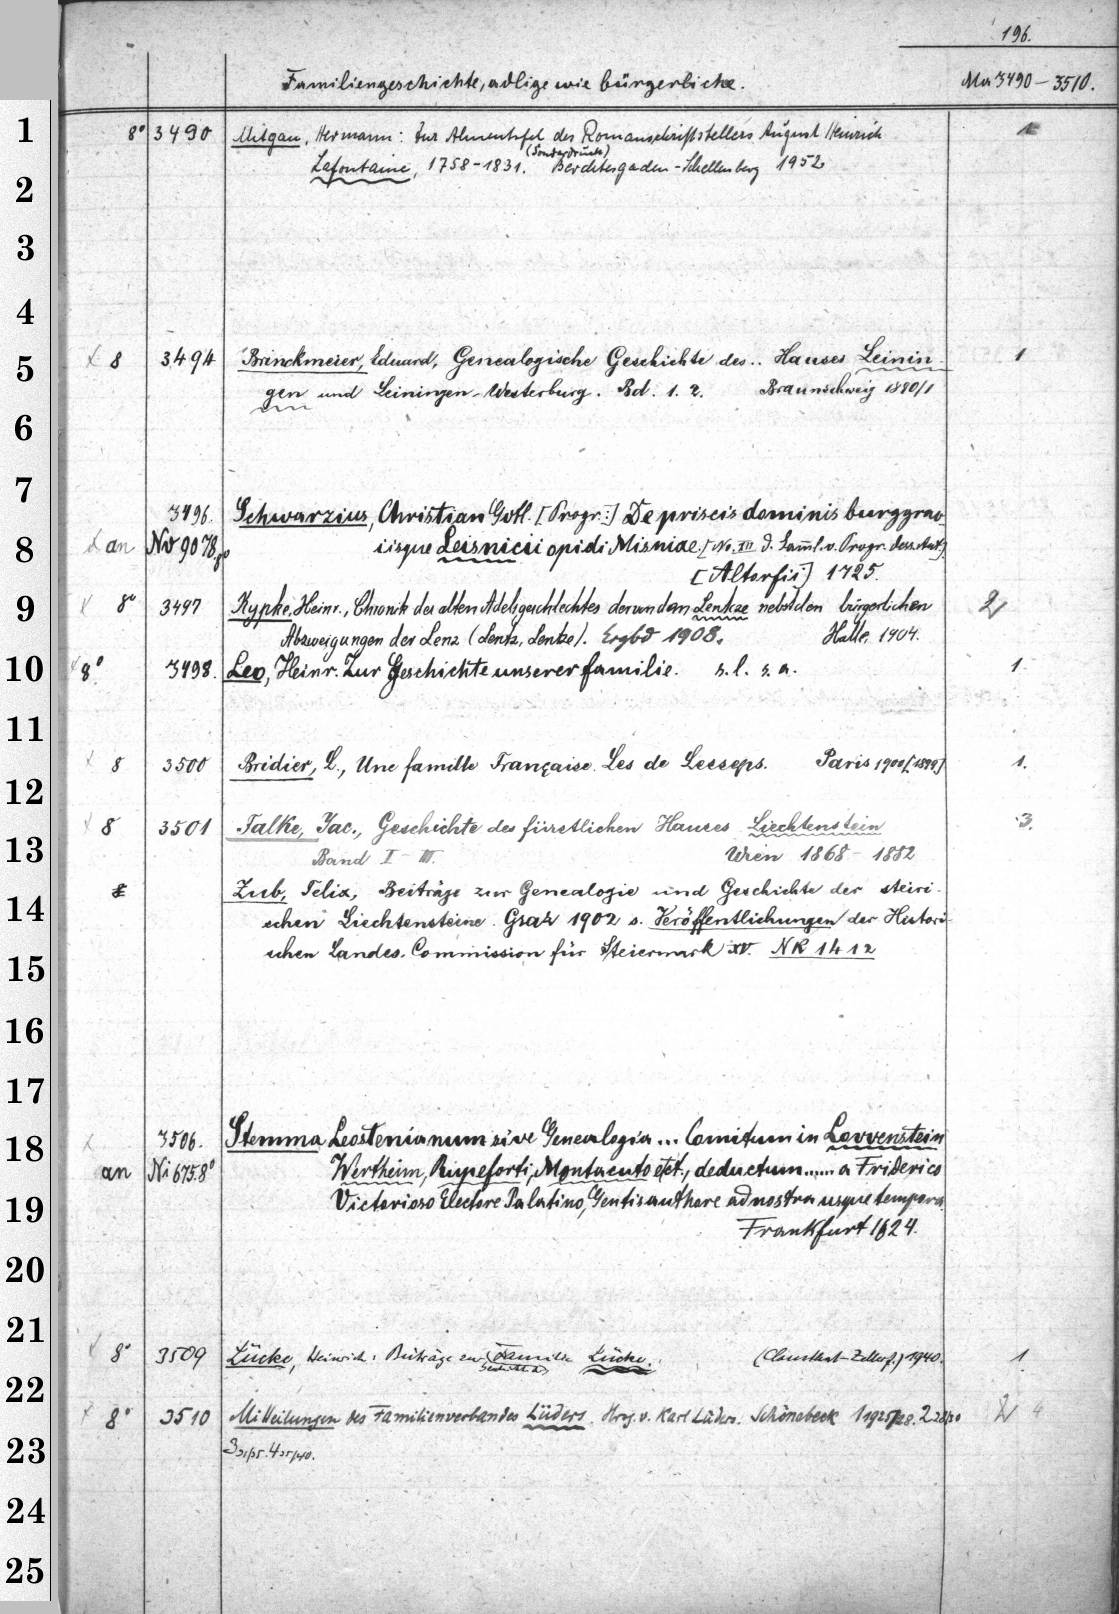 196.
Familiengeschichte, adlige wie bürgerliche. Ma 3490 – 3510.
1 8° 3490 Mitgau, Hermann: Zur Ahnentafel des Romanschriftstellers August Heinrich 1
(Sonderdruck)
2 Lafontaine, 1758-1831. Berchtesgaden-Schellenberg 1952
3
4
5 8 3494 Brinckmeier, Eduard, Genealogische Geschichte des.. Hauses Leinin- 1
gen und Leiningen-Westerburg. Bd. 1. 2. Braunschweig 1890/1
6
7
3496. Schwarzius, Christian Gotl. [Progr.:] De priscis dominis burggrav-
8 an Nv 9078,8° iisque Leisnicii opidi Misniae. [No. XII d. Samml. v. Progr. dess. Aut.]
[Altorfii] 1725.
9 8° 3497 Kypke, Heinr., Chronik des alten Adelsgeschlechtes derer von dem Lenkze nebst den bürgerlichen 2
Abzweigungen der Lenz (Lentz, Lentze). Ergbd 1908. Halle, 1904.
10 8° 3498. Leo, Heinr. Zur Geschichte unserer Familie. s. l. s. a. 1
11
8 3500 Bridier, L., Une famille Française. Les de Lesseps. Paris 1900 [1899] 1.
12
8 3501 Falke, Jac., Geschichte des fürstlichen Hauses Liechtenstein 3.
13 Band I – III. Wien 1868 – 1882
Zub, Felix, Beiträge zur Genealogie und Geschichte der steiri-
14 schen Liechtensteine. Graz 1902 s. Veröffentlichungen der Histori-
schen Landes-Commission für Steiermark XV. NR 1412
15
16
17
18 3506. Stemma Leostenianum sive Genealogia ... Comitum in Lovvenstein
an Ni 675.8° Wertheim, Rupeforti, Montacuto etct., deductum...... a Friderico
19 Victorioso Electore Palatino, Gentis authore ad nostra usque tempora.
Frankfurt 1624.
20
21
8° 3509 Lücke, Heinrich: Beiträge zur Familie Lücke. (Clausthal-Zellerf.) 1940. 1
22
8° 3510 Mitteilungen des Familienverbandes Lüders. Hrsg. v. Karl Lüders. Schönebeck 1 1925/28. 2 28/30 2 4
23 3 31/35. 4 35/40.
24
25